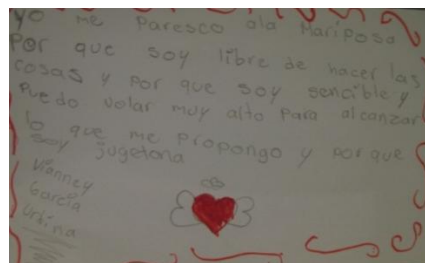 yo me Paresco ala Mariposa
Por que soy libre de hacer las
cosas y por que soy sencible y
Puedo volar muy alto Para alcanzar
lo que me propongo y porque
soy jugetona
Vianney
García
Urbina